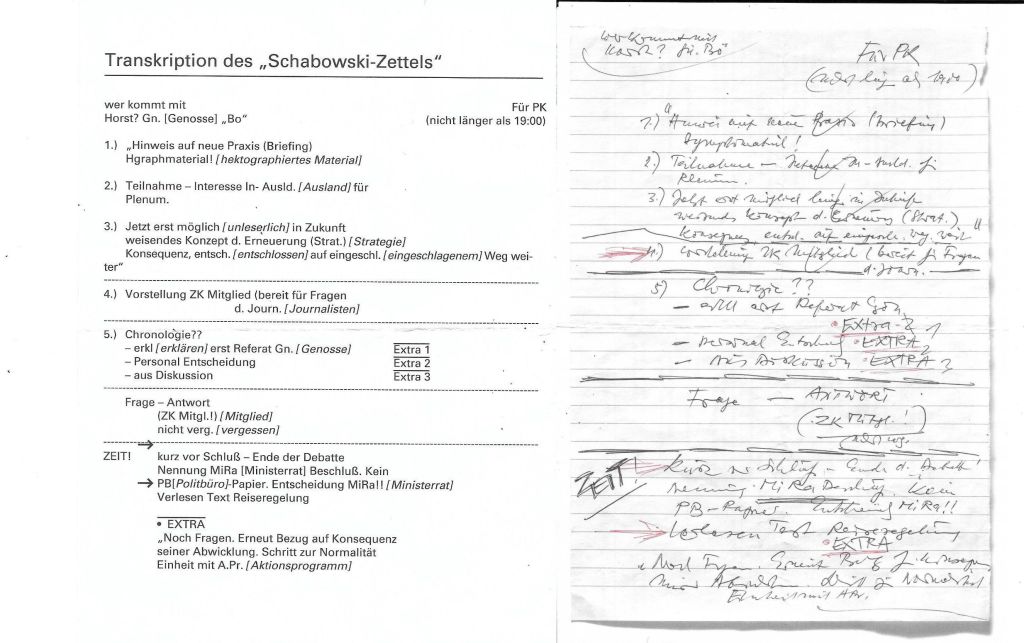 Transkription des „Schabowski-Zettels“
wer kommt mit
Für PK
Horst? Gn. [Genosse] „Bo“
(nicht länger als 19:00)
1.) „Hinweis auf neue Praxis (Briefing)
Hgraphmaterial! [hektographiertes Material]
2.) Teilnahme – Interesse In- Ausld. [Ausland] für
Plenum.
3.) Jetzt erst möglich [unleserlich] in Zukunft
weisendes Konzept d. Erneuerung (Strat.) [Strategie]
Konsequenz, entsch. [entschlossen] auf eingeschl. [eingeschlagenem] Weg wei-
ter“
4.) Vorstellung ZK Mitglied (bereit für Fragen
d. Journ. [Journalisten]
5.) Chronologie??
– erkl [erklären] erst Referat Gn. [Genosse] Extra 1
– Personal Entscheidung Extra 2
– aus Diskussion Extra 3
Frage – Antwort
(ZK Mitgl.!) [Mitglied]
nicht verg. [vergessen]
ZEIT! kurz vor Schluß – Ende der Debatte
Nennung MiRa [Ministerrat] Beschluß. Kein
PB[Politbüro]-Papier. Entscheidung MiRa!! [Ministerrat]
Verlesen Text Reiseregelung
• EXTRA
„Noch Fragen. Erneut Bezug auf Konsequenz
seiner Abwicklung. Schritt zur Normalität
Einheit mit A.Pr. [Aktionsprogramm]
wer kommt mit
Für PK
(nicht läng als 19:00)
1.) „Hinweis auf neue Praxis (Briefing)
2.) Teilnahme – In-Ausld. f.
Plenum.
3.) Jetzt erst möglich in Zukunft
weisendes Konzept d. Erneuerung (Strat.)
Konsequenz, entsch. auf Weg weit“
4.) Vorstellung ZK Mitglied (bereit für Fragen
d. Journ.
5) Chronologie??
– erkl erst Referat Gn.
• EXTRA 1
– Personal Entscheid • EXTRA 2
– Aus Diskussion • EXTRA 3
Frage — ANTWORT
(ZK Mitgl.!)
nicht verg.
ZEIT! Kurz vor Schluß – Ende d. Debatte!
Nennung MiRa Beschluß. Kein
PB-Papier. MiRa!!
Verlesen Text Reiseregelung
• EXTRA
Noch Fragen. Erneut Bezug
Einheit mit APr.